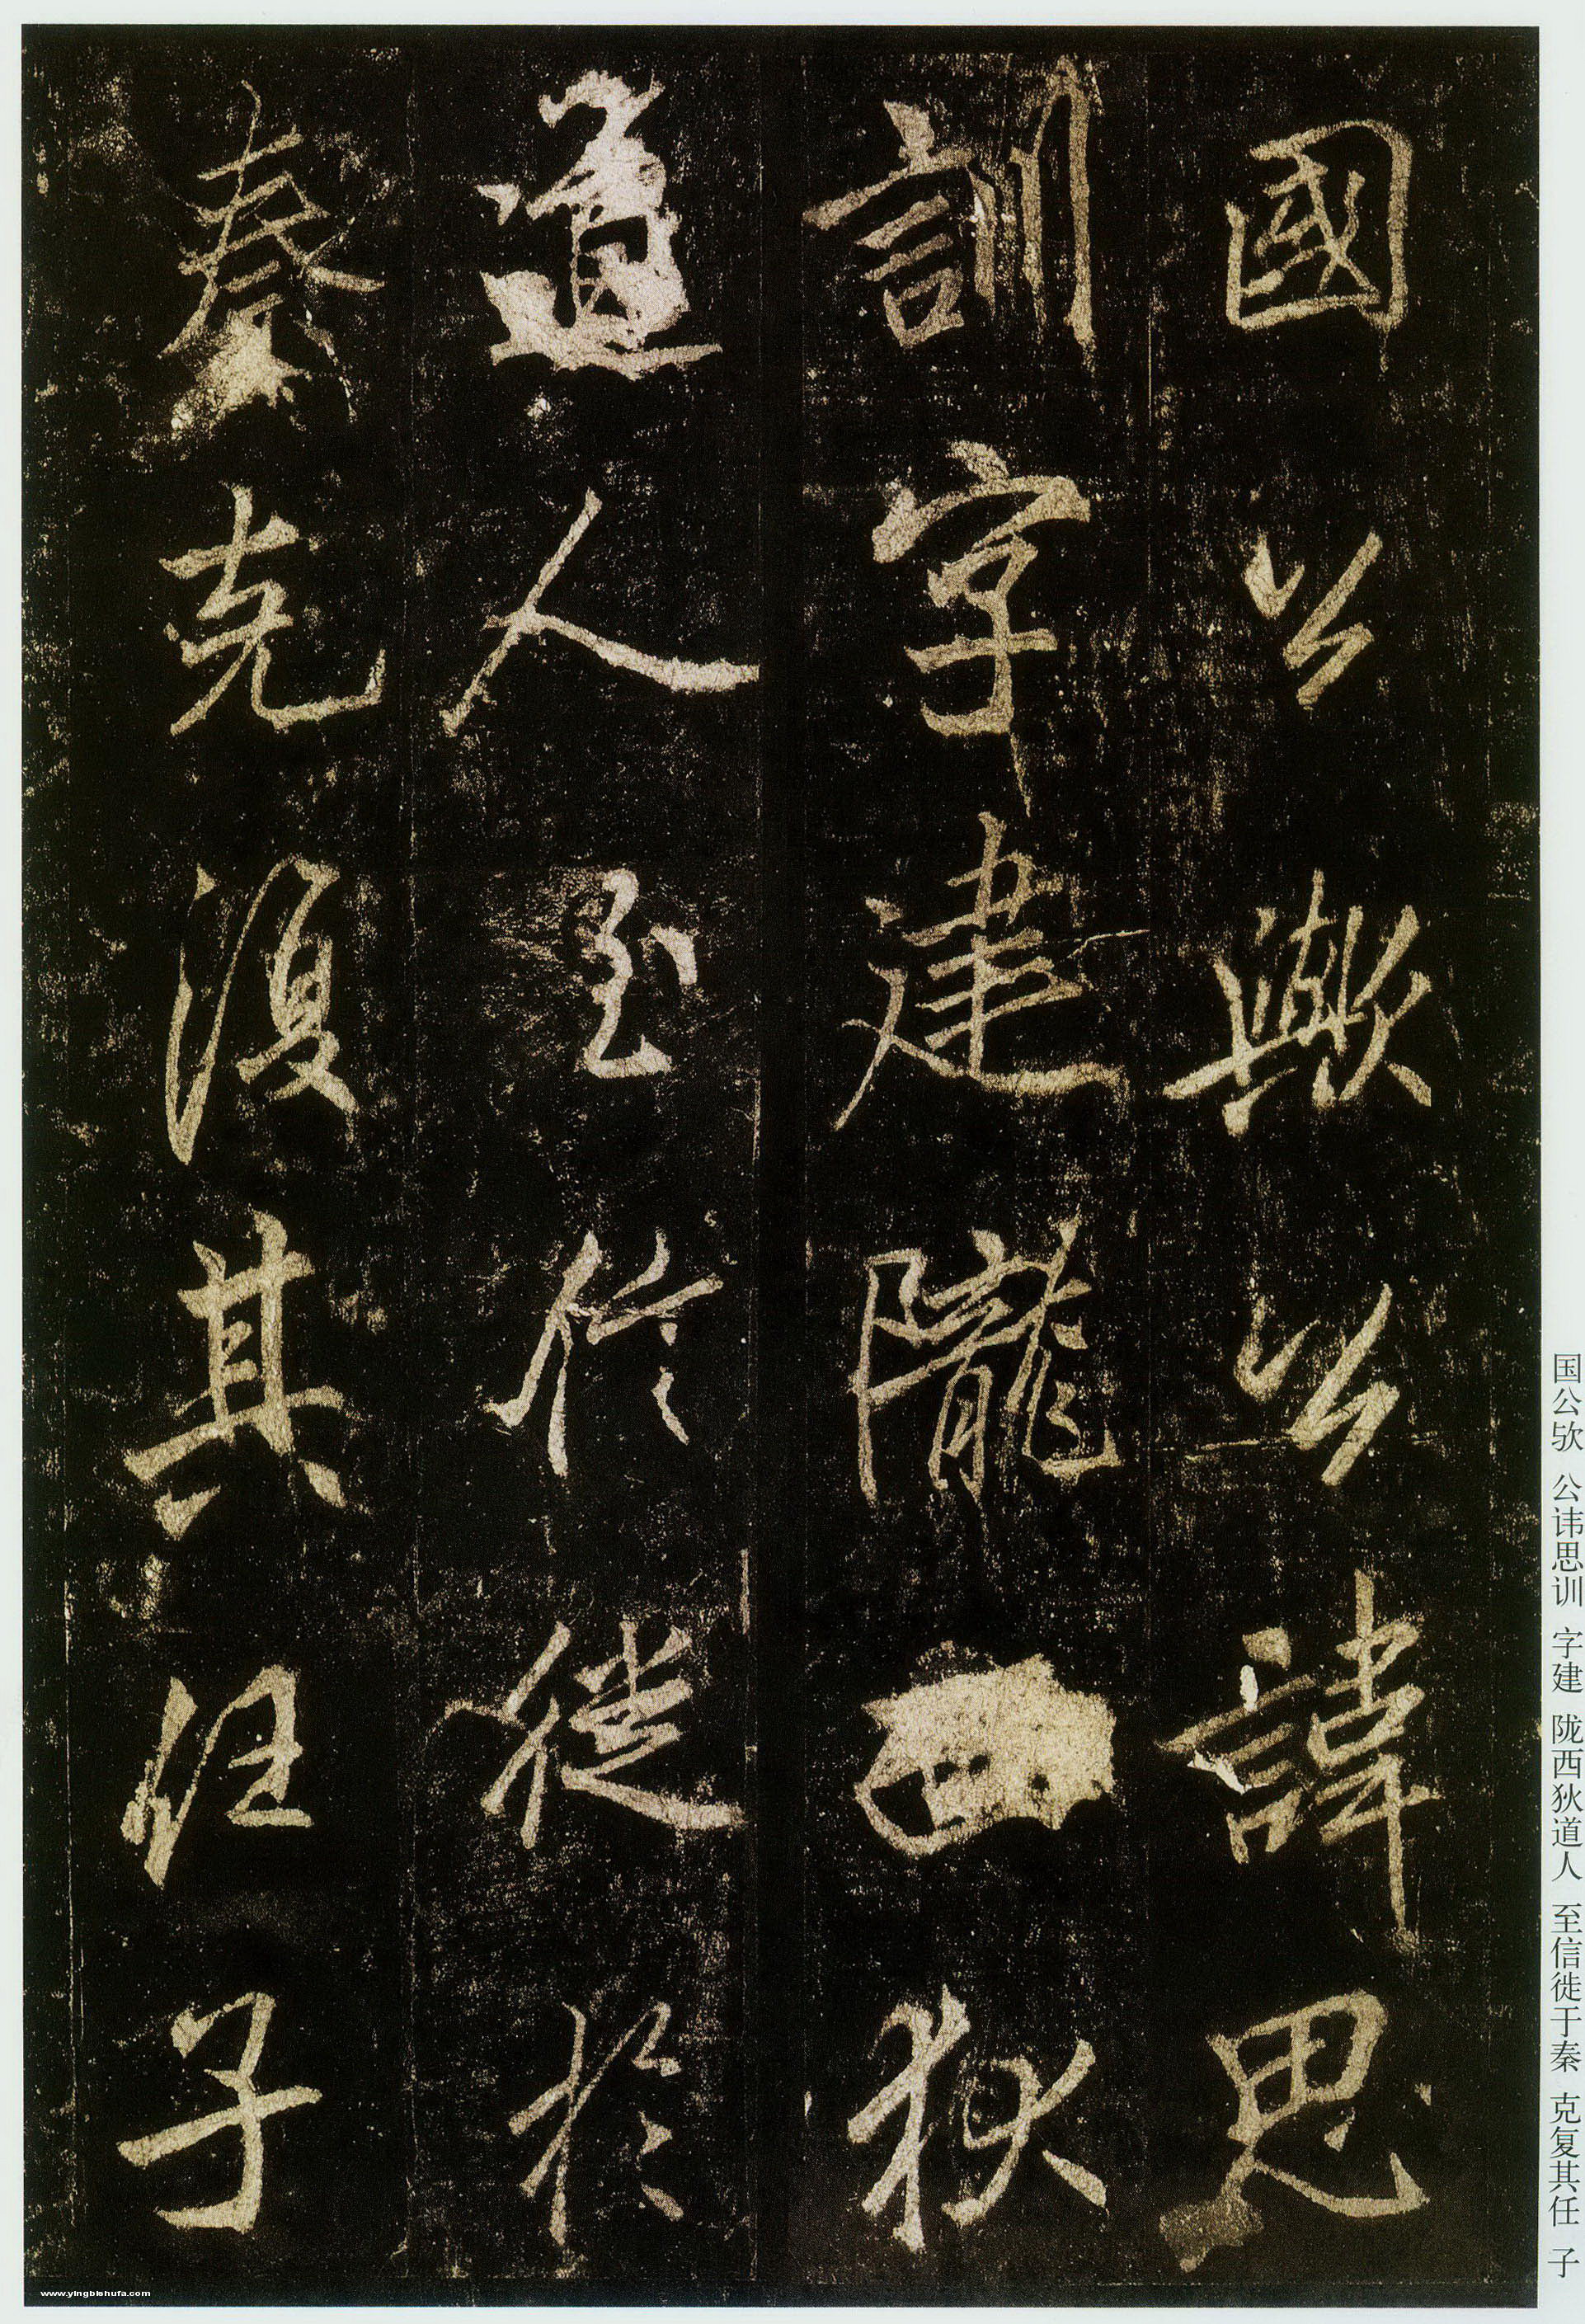 國公歟公諱思
訓字建隴西狄
道人至信徙於
秦克復其任子
国公欤 公讳思训 字建 陇西狄道人 至信徙于秦 克复其任 子
www.yingbishufa.com